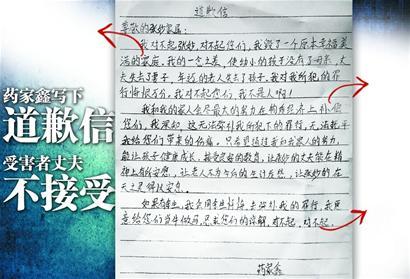 药家鑫写下
道歉信
受害者丈夫
不接受
道歉信
尊敬的张妙家属：
我对不起张妙，对不起你们，我毁了一个原本幸福美
满的家庭。我的一念之差，使幼小的孩子没有了母亲，丈
夫失去了妻子，年迈的老人失去了孩子。我对我所犯的罪
行悔恨万分。我对不起你们，我不是人啊！
我和我的家人会尽最大的努力在物质经济上补偿
你们，我深知，这无法弥补我所犯下的罪行，无法抚平
我给你们带来的伤痛。只希望通过我和我家人的努力，
能让孩子健康成长，接受良好的教育，让张妙的丈夫能在精
神上有所安慰，让老人不为今后的生计
天之灵得以安息。
如果有来生，我会用来生
给你们当牛做马，恳求你们的谅解，对不起，对不起。
药家鑫